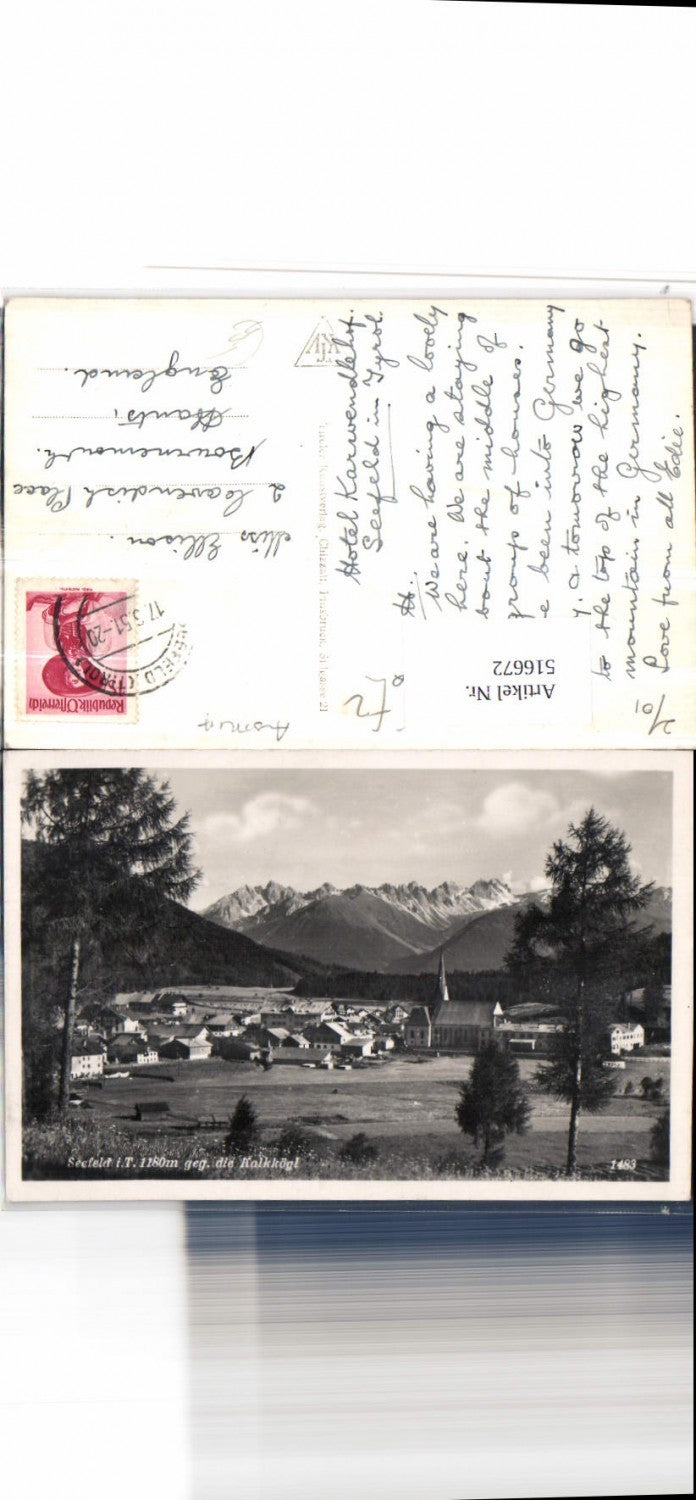 Hotel Karwendelhof.
Seefeld in Tyrol.
We are having a lovely
here. We are staying
bout the middle of
group of houses.
e been into Germany
y. & tomorrow we go
to the top of the highest
mountain in Germany.
Love from all Edie.
Miss Ellison.
2 Cavendish Place
Bournemouth.
Hants,
England.
Republik Österreich
17.3.51-20
SEEFELD (TIROL)
Chizzali Innsbruck,
Artikel Nr.
516672
Seefeld i.T. 1180m geg. die Kalkkögl
1483